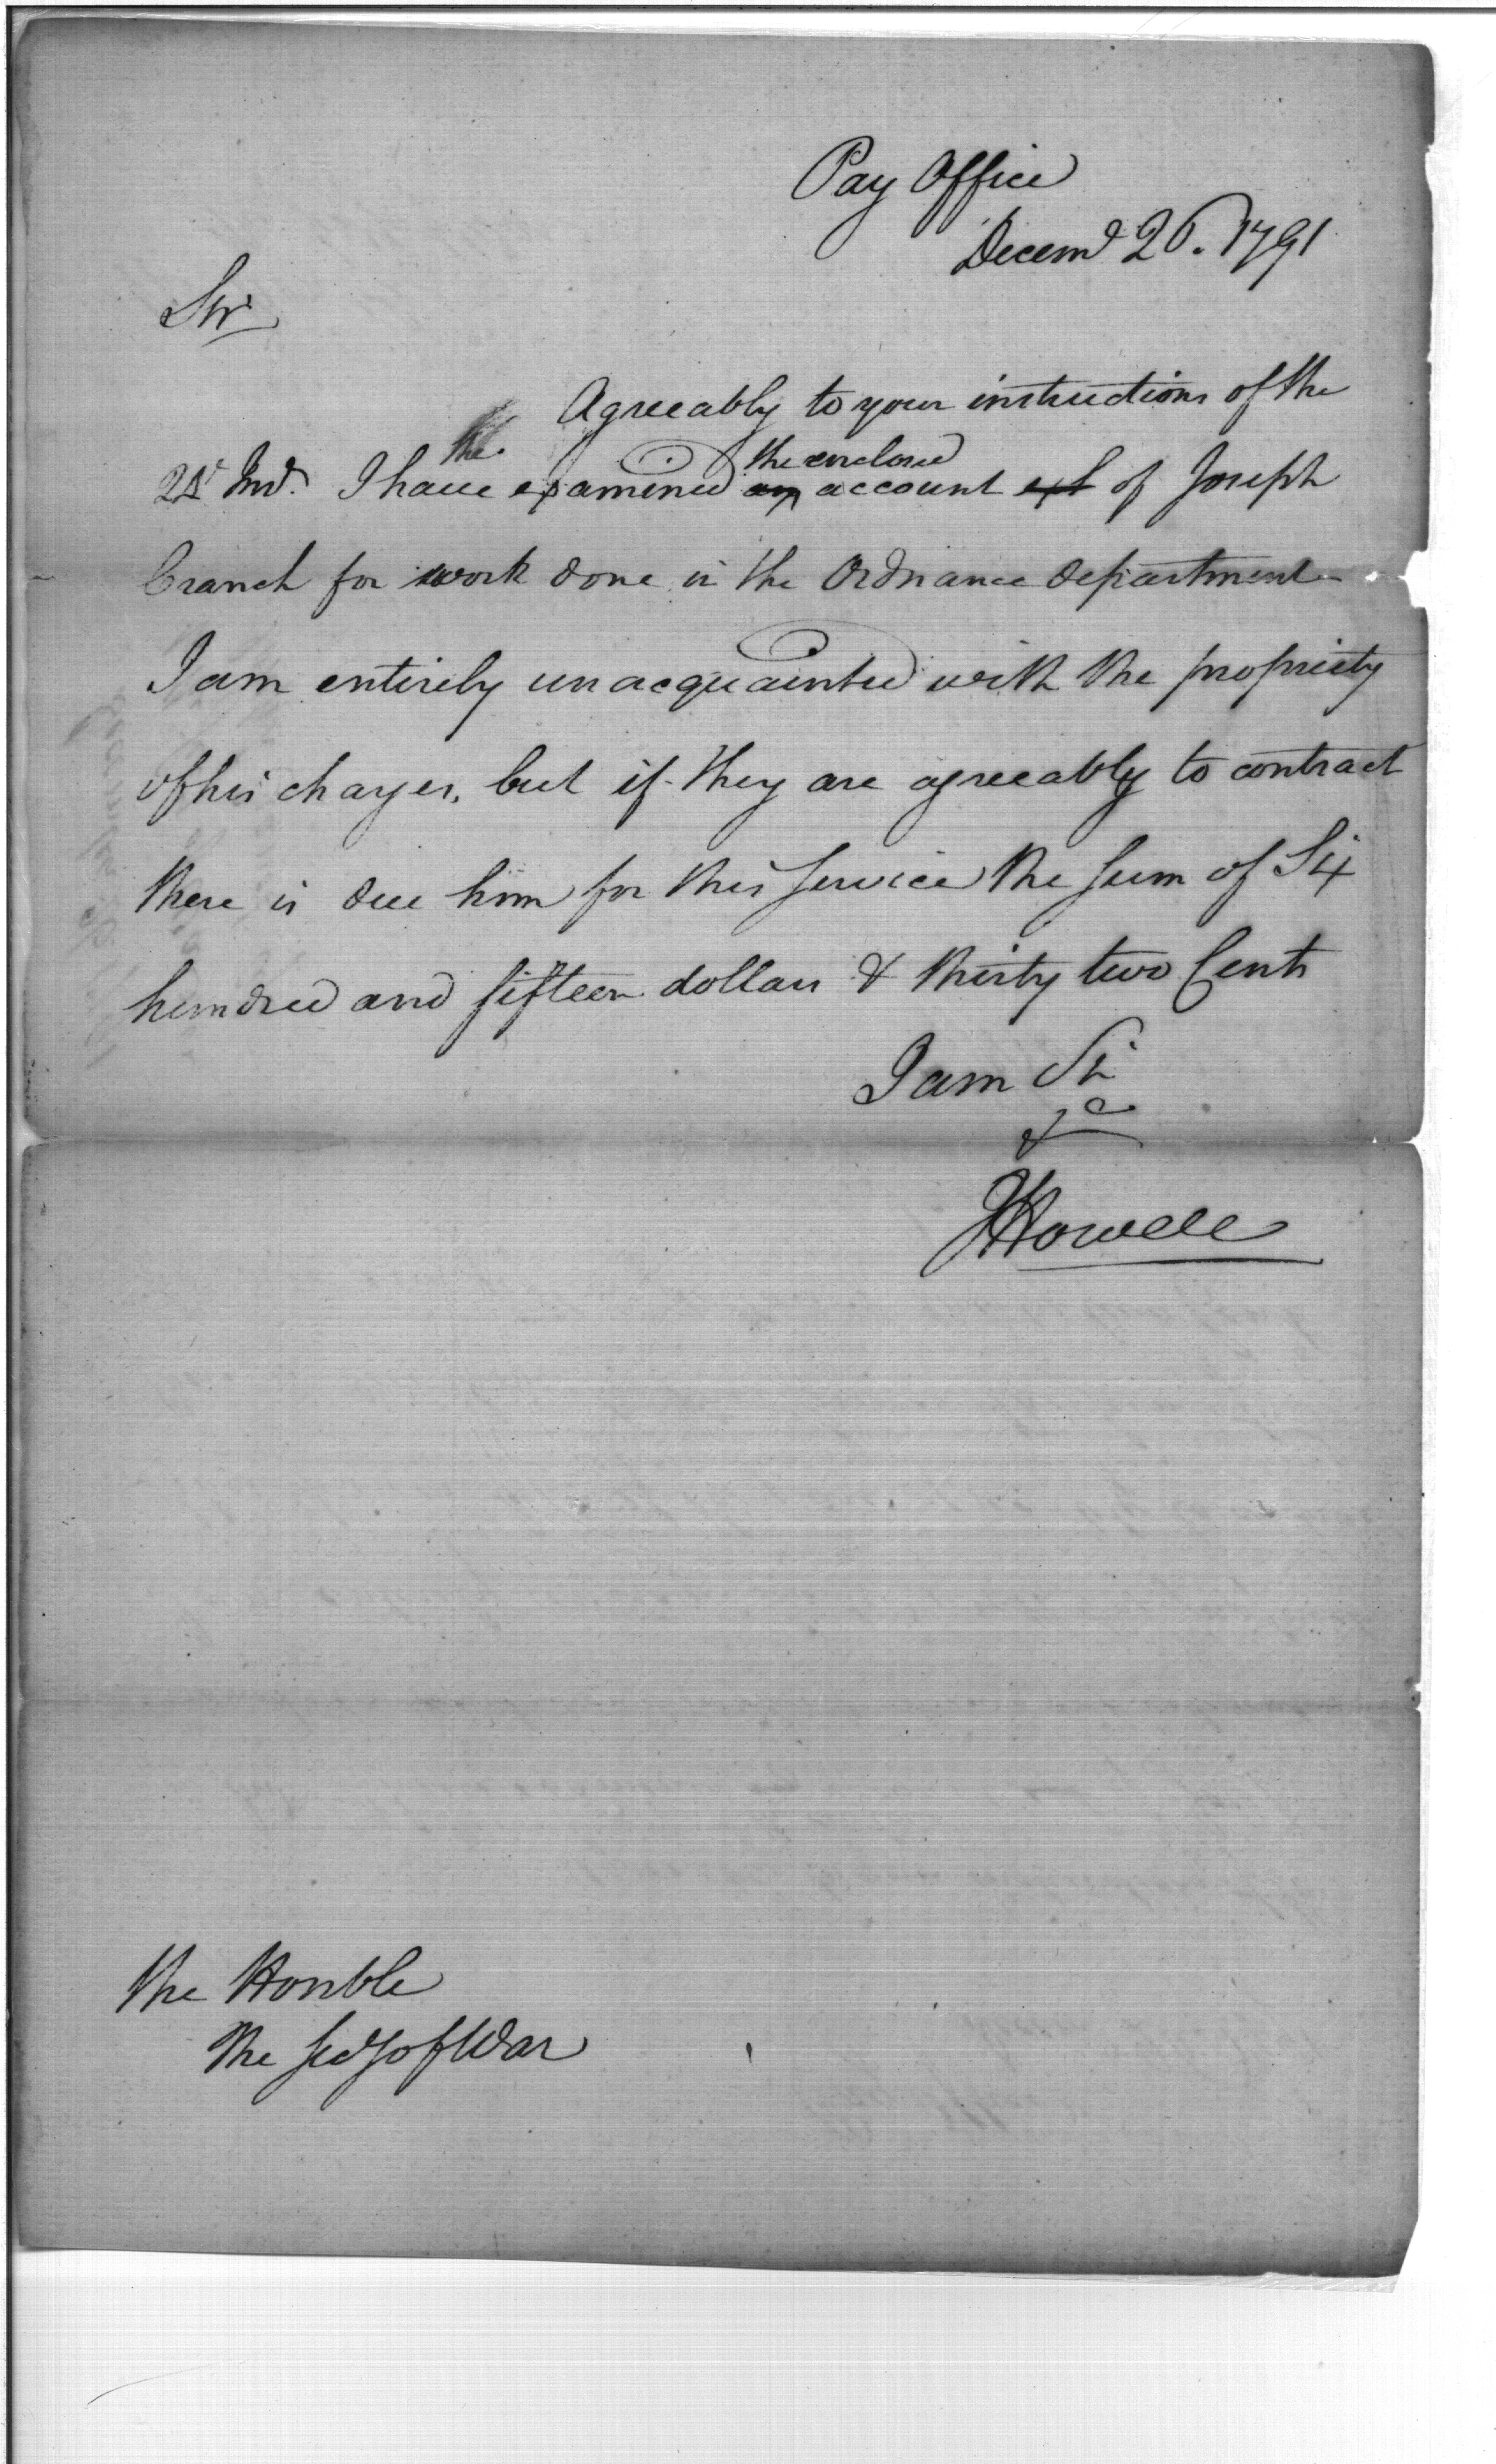 Pay Office
Decemr 26. 1791
Sir
Agreeably to your instructions of the
the
the enclosed
21st Inst. I have examined an account ext of Joseph
Cranch for work done in the Ordnance department
I am entirely unacquainted with the propriety
of his charges, but if they are agreeably to contract
there is due him for this service the sum of Six
hundred and fifteen dollars & thirty two Cents
I am Sir
&c
JHowell
The Honble
The Secy of War